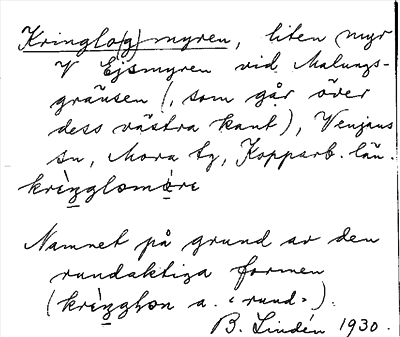 Kringlo(g)myren, liten myr
V Ejsmyren vid Malungs-
gränsen (, som går över
dess västra kant), Venjans
sn, Mora tg, Kopparb. län.
krìnglomỳri
Namnet på grund av den
rundaktiga formen
(krìnglon a. "rund").
B. Lindén 1930.